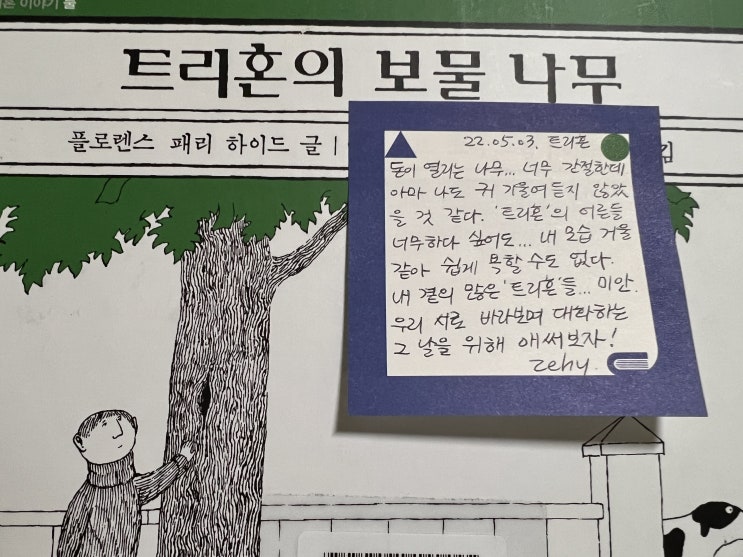 이야기 둘
트리혼의 보물 나무
플로렌스 패리 하이드 글 |
22.05.03. 트리혼
돈이 열리는 나무... 너무 간절한데
아마 나도 귀 기울여듣지 않았
을 것 같다. '트리혼'의 어른들
너무하다 싶어도... 내 모습 거울
같아 쉽게 욕할 수도 없다.
내 곁의 많은 '트리혼'들... 미안.
우리 서로 바라보며 대화하는
그 날을 위해 애써보자!
zehy.